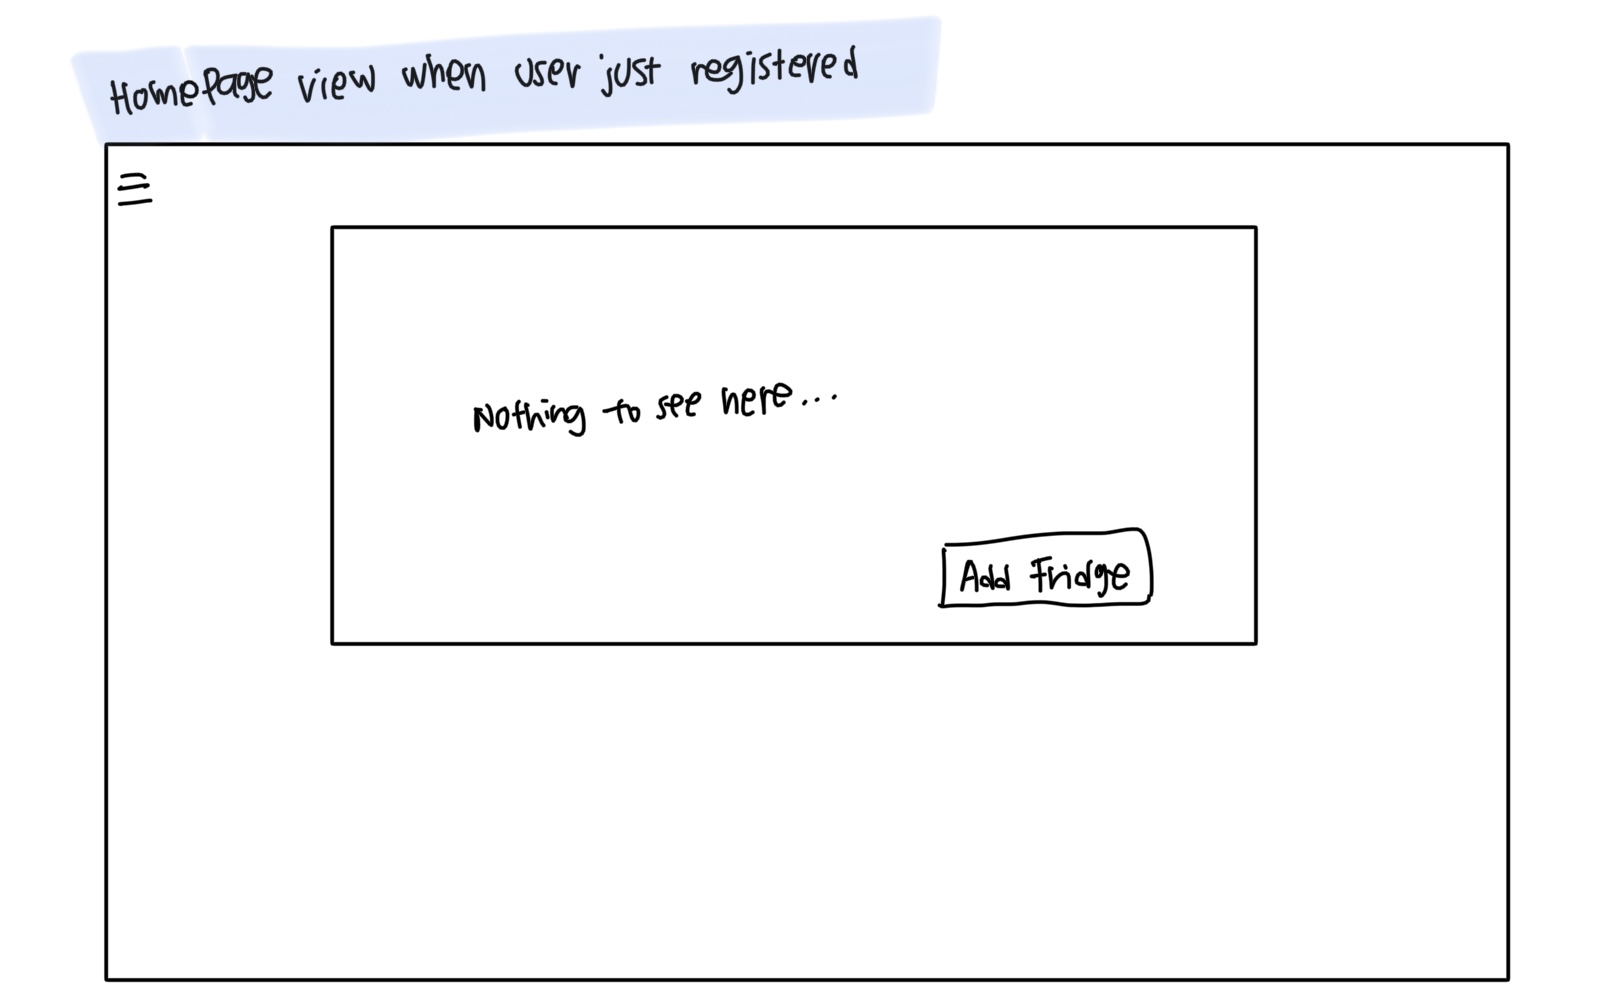 HomePage view when user just registered
Nothing to see here...
Add Fridge